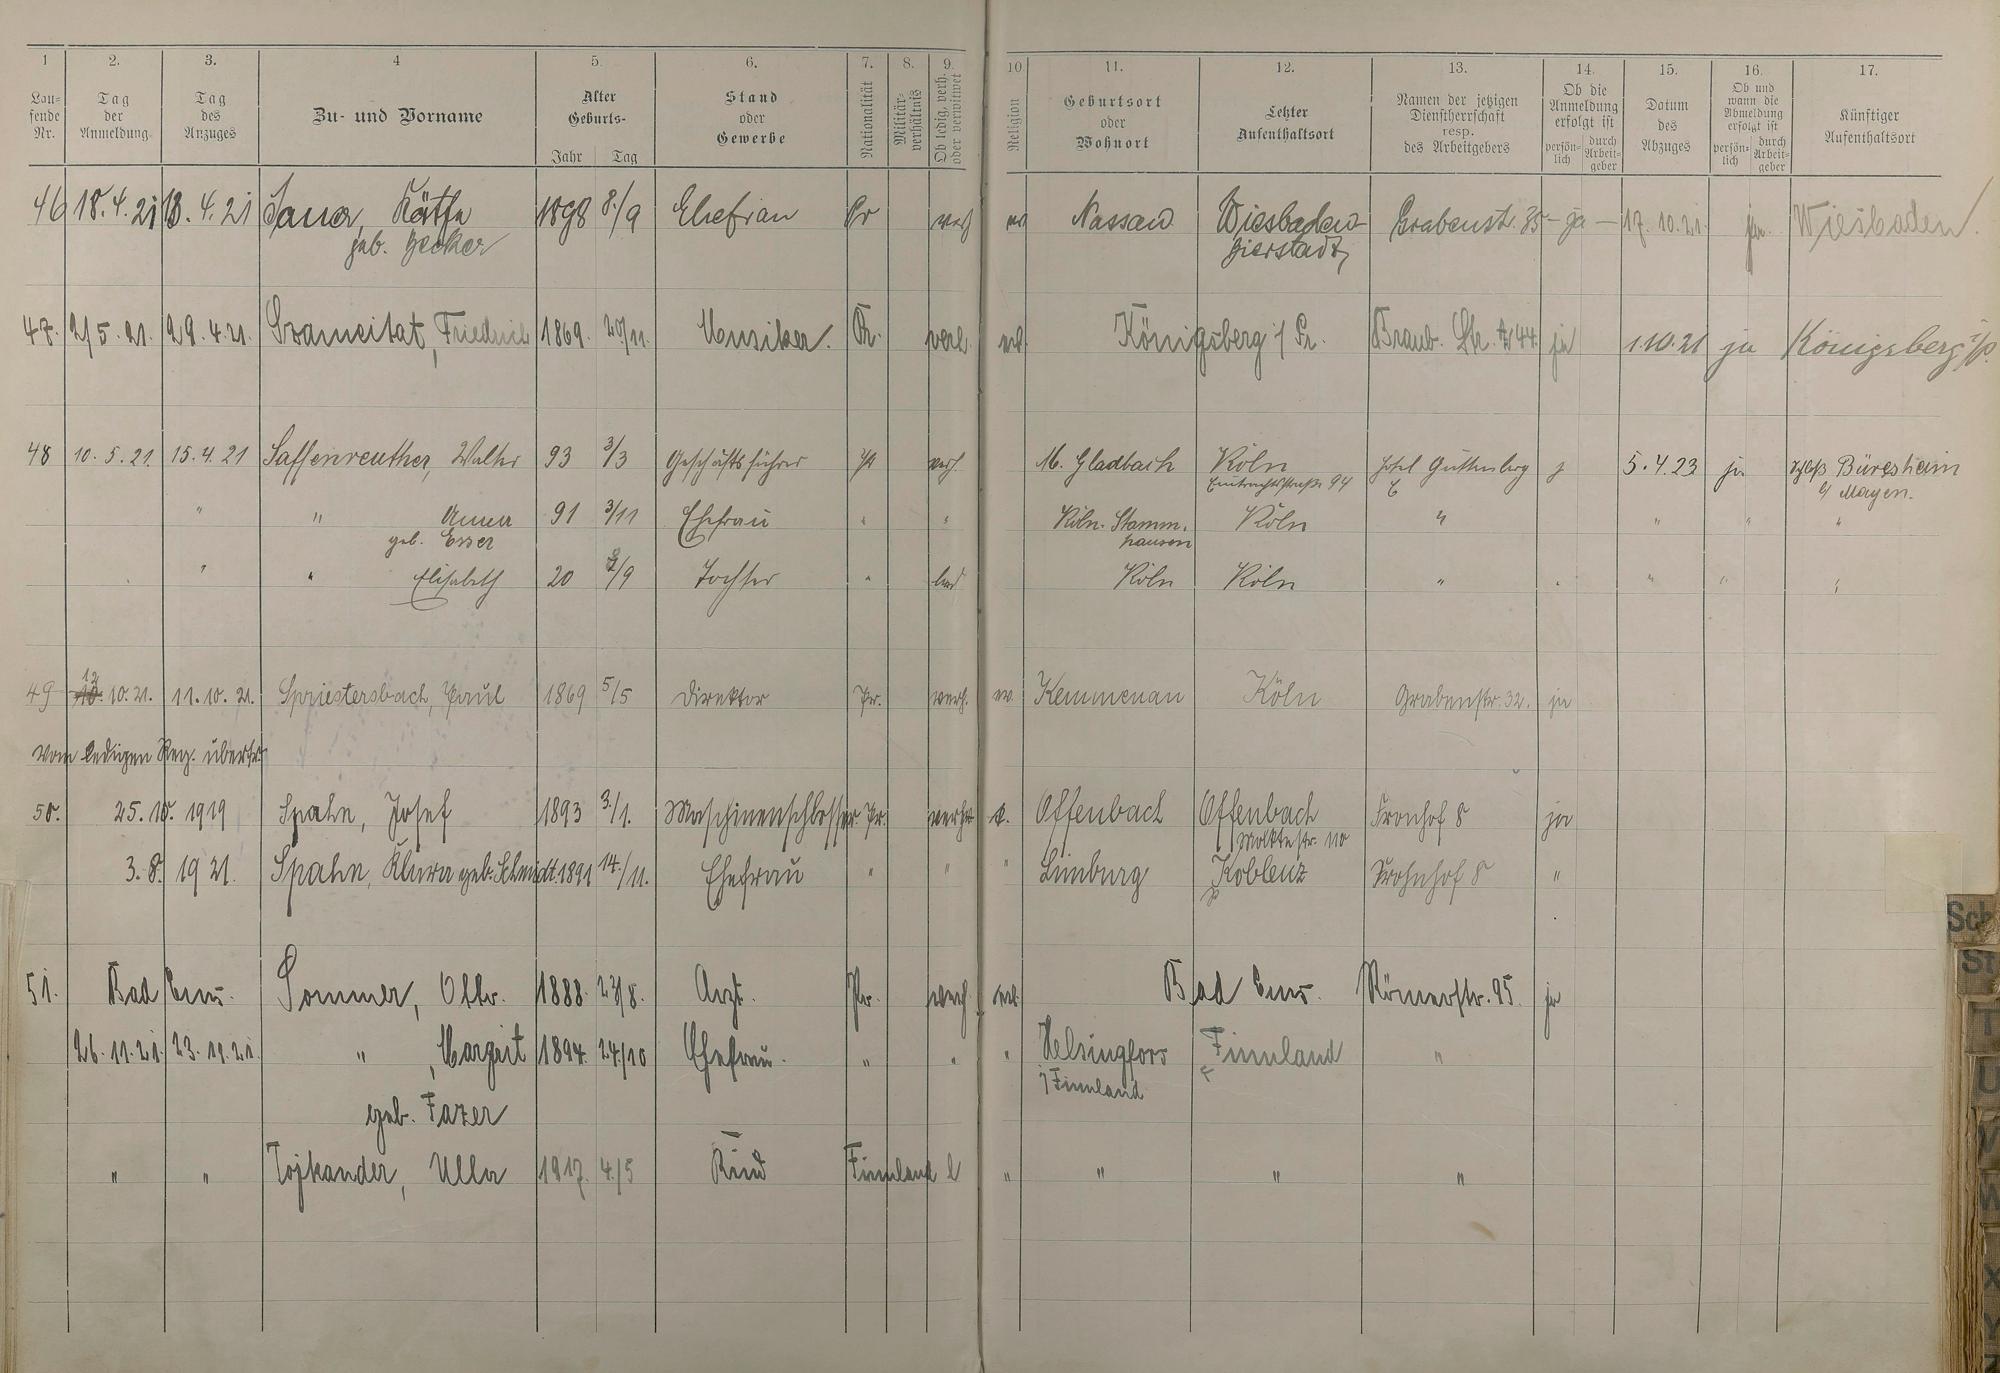 1 2. 3. 4 5. 6. 7. 8. 9. 10 11. 12. 13. 14. 15. 16. 17.
Lau-
fende
Nr.
Tag
der
Anmeldung.
Tag
des
Anzuges
Zu- und Vorname
Alter
Geburts-
Jahr Tag
Stand
oder
Gewerbe
Nationalität
Militär-
verhältnis
Ob ledig, verh.
oder verwitwet
Religion
Geburtsort
oder
Wohnort
Letzter
Aufenthaltsort
Namen der jetzigen
Dienstherrschaft
resp.
des Arbeitgebers
Ob die
Anmeldung
erfolgt ist
persön-
lich
durch
Arbeit-
geber
Datum
des
Abzuges
Ob und
wann die
Abmeldung
erfolgt ist
persön-
lich
durch
Arbeit-
geber
Künftiger
Aufenthaltsort
46 18. 4. 21 18. 4. 21 Käthe 1898 8./9 Ehefrau Pr verh Nassau Wiesbaden Grabenstr. 35 - ja - 17. 10. 21. ja. Wiesbaden.
geb. Becker Bierstadt
47. 2/5. 21. 29. 4. 21. Friedrich 1869. 20/11. Musiker. Pr. verh. Königsberg i/ Pr. Braub. Str. 44 ja 1.10.21 ja Königsberg i/P.
48 10. 5. 21. 15. 4. 21 Saffenreuther, Walter 93 3/3 Geschäftsführer Pr verh. M. Gladbach Köln Hotel Guttenberg j 5. 4. 23 ja Schloß Büresheim
Eintrachtstraße 94 b/ Mayen.
" " Anna 91 3/11 Ehefrau " " Köln-Stamm- Köln " " " "
geb. Esser hausen
" " Elisabeth 20 /9 Tochter " led Köln Köln " " " " "
49 12. 10. 21. 11. 10. 21. Spriestersbach, Paul 1869 5/5 Direktor Pr. verh. ev. Kemmenau Köln Grabenstr. 32. ja
Vom ledigen Reg. übertr.
50. 25. 10. 1919 Spahn, Josef 1893 3./1. Maschinenschlosser Pr. verh. k. Offenbach Offenbach Fronhof 8 ja
Moltkestr. 110
3. 8. 1921. Spahn, Klara geb. Schmidt. 1891 14./11. Ehefrau " " " Limburg Koblenz Frohnhof 8 "
51. Bad Ems. Sommer, Otto. 1888. 23/8. Arzt. Pr. verh. ev. Bad Ems. Römerstr. 95. ja
26. 11. 21. 23. 11. 21. " , Margit 1894. 24/10 Ehefrau. " " " Helsingfors Finnland "
i/ Finnland
geb. Fazer
" " Tojkander, Ulla 1917. 4./5 Kind Finnland l " " " "
Sch
St
T
U
V
W
X
Y
Z